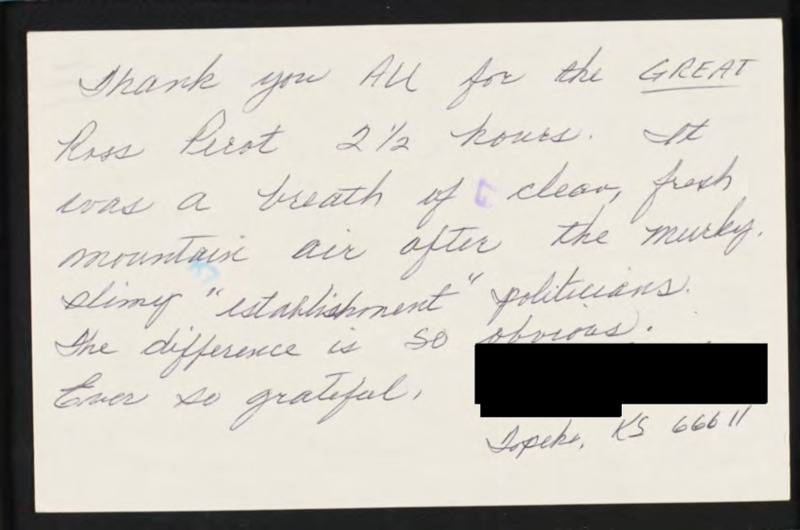 Thank you All for the GREAT
Ross Perot 2 1/2 hours. It
was a breath of clean, fresh
mountain air after the murky,
slimy "establishment" politicians.
The difference is so obvious.
Ever so grateful,
Topeka, KS 66611